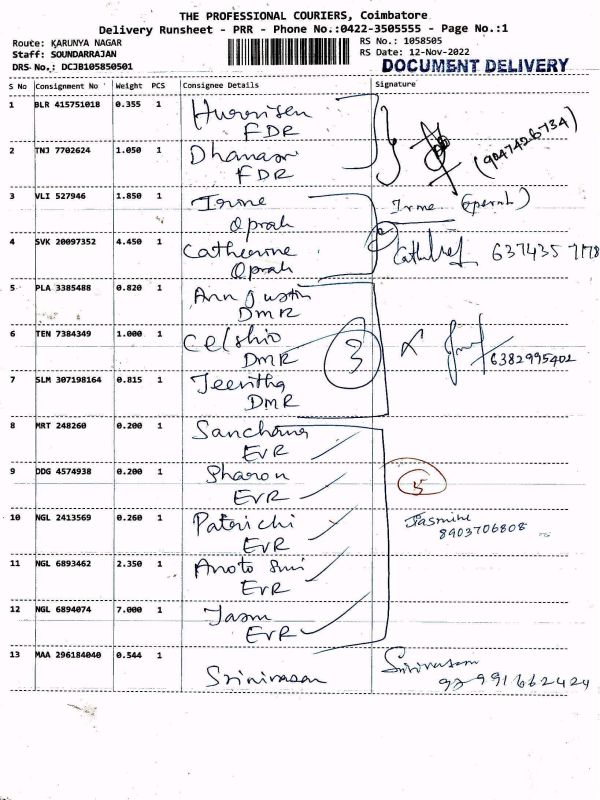 THE PROFESSIONAL COURIERS, Coimbatore
Delivery Runsheet - PRR - Phone No.:0422-3505555 - Page No.:1
Route: KARUNYA NAGAR
Staff: SOUNDARRAJAN
DRS No.: DCJB105850501
RS No.: 1058505
RS Date: 12-Nov-2022
DOCUMENT DELIVERY
S No Consignment No Weight PCS Consignee Details Signature
1 BLR 415751018 0.355 1
FDR
2 TNJ 7702624 1.050 1 Dhanasr
FDR
(9047426734)
3 VLI 527946 1.850 1 Irine
Oprah
4 SVK 20097352 4.450 1 Catherine
Oprah
5 PLA 3385488 0.820 1 Ann Justin
DMR
6 TEN 7384349 1.000 1 Celshio
DMR
3
6382995402
7 SLM 307198164 0.815 1 Jeevitha
DMR
8 MRT 248260 0.200 1 Sanchana
EVR
9 DDG 4574938 0.200 1 Sharon
EVR
5
10 NGL 2413569 0.260 1 Patrichi
EVR
Jasmine
8903706808
11 NGL 6893462 2.350 1
EVR
12 NGL 6894074 7.000 1 Jasm
EVR
13 MAA 296184040 0.544 1 Srinivasan
Srinivasan